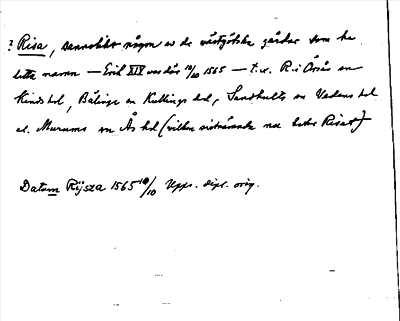 ? Risa, sannolikt någon av de västgötska gårdar som ha
detta namn — Erik XIV var där 10/10 1565 — t.ex. R. i Örsås sn
Kinds hd, Bälinge sn Kullings hd, Sandhults sn Vedens hd
el. Murums sn Ås hd (vilken sistnämnda nu heter Risat)
Datum Rijsza 1565 10/10 Upps. dipl. orig.